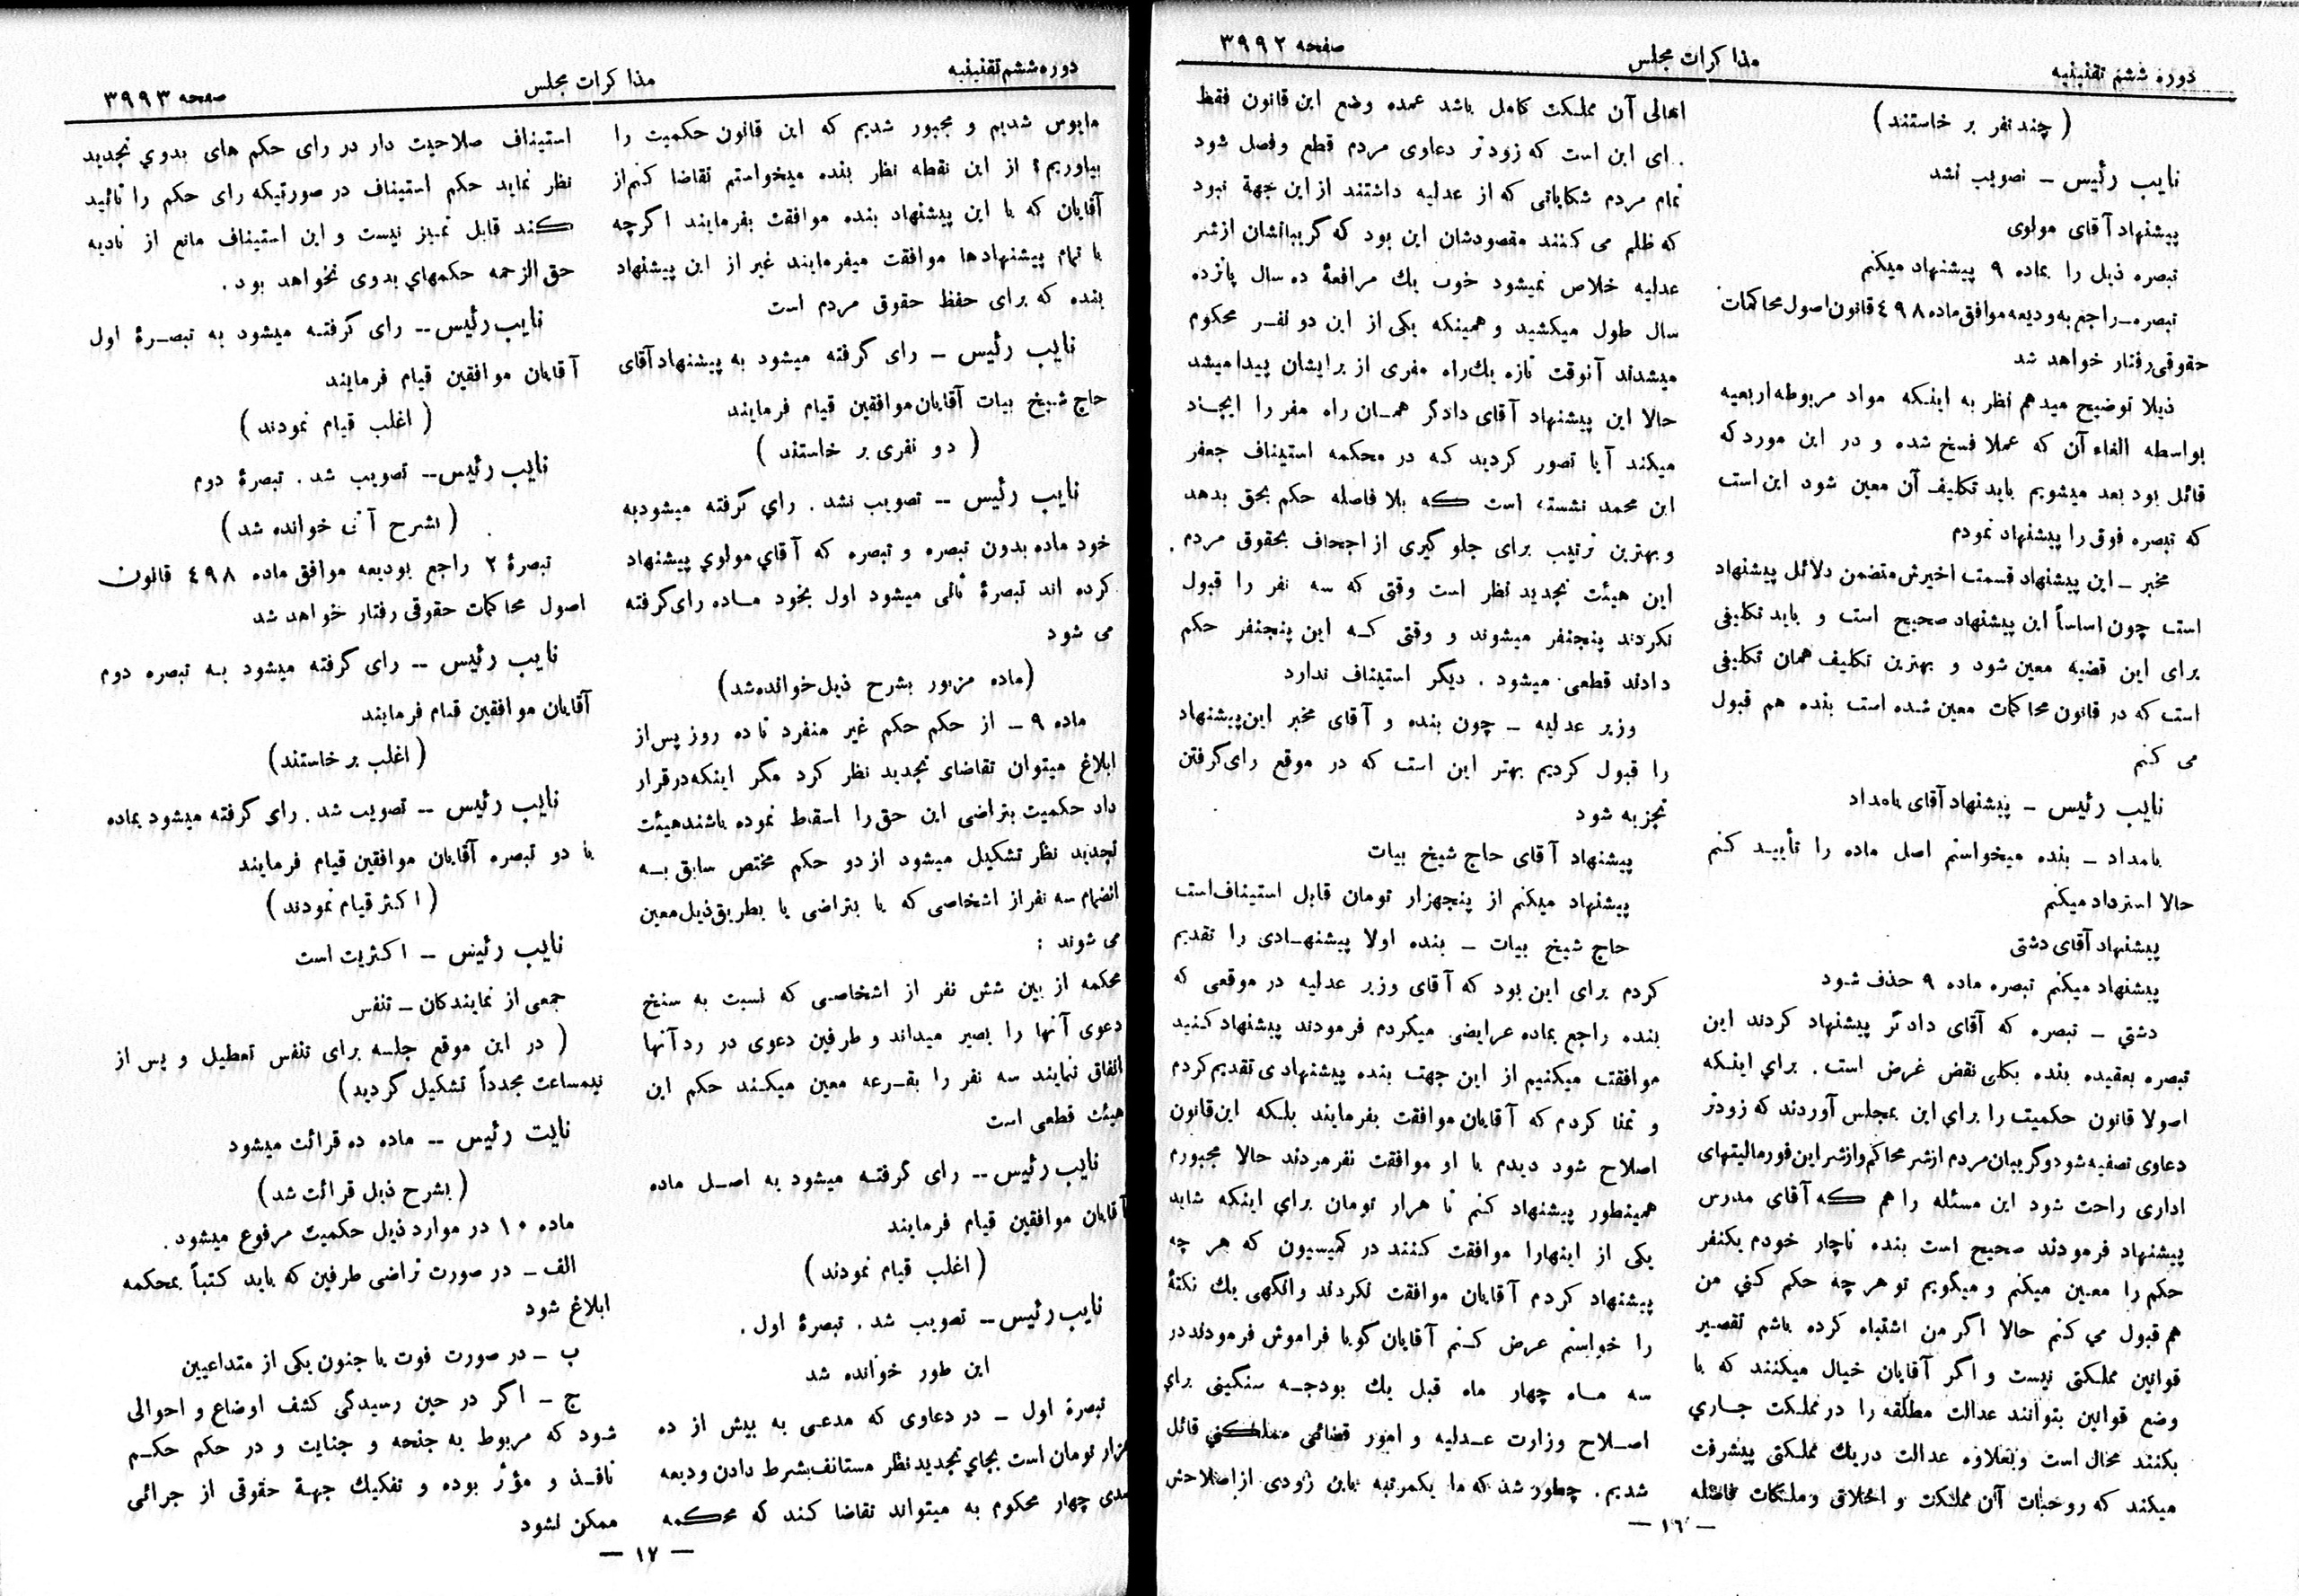 دوره ششم تقنینیه
مذاکرات مجلس
صفحه ۳۹۹۲
( چند نفر بر خاستند )
نایب رئیس – تصویب نشد
پیشنهاد آقای مولوی
تبصره ذیل را بماده ۹ پیشنهاد میکنم
تبصره–راجع به ودیعه موافق ماده ٤٩٨ قانون اصول محاکمات
حقوقی رفتار خواهد شد
ذیلا توضیح میدهم نظر به اینکه مواد مربوطه اربعیه
بواسطه الغاء آن که عملا فسخ شده و در این مورد که
قائل بود بعد میشویم باید تکلیف آن معین شود این است
که تبصره فوق را پیشنهاد نمودم
مخبر – این پیشنهاد قسمت اخیرش متضمن دلائل پیشنهاد
است چون اساساً این پیشنهاد صحیح است و باید تکلیفی
برای این قضیه معین شود و بهترین تکلیف همان تکلیفی
است که در قانون محاکمات معین شده است بنده هم قبول
می کنم
نایب رئیس – پیشنهاد آقای بامداد
بامداد – بنده میخواستم اصل ماده را تأیید کنم
حالا استرداد میکنم
پیشنهاد آقای دشتی
پیشنهاد میکنم تبصره ماده ۹ حذف شود
دشتي – تبصره که آقای دادگر پیشنهاد کردند این
تبصره بعقیده بنده بکلی نقض غرض است . براي اینکه
اصولا قانون حکمیت را براي این بمجلس آوردند که زودتر
دعاوی تصفیه شود و گریبان مردم از شر محاکم و از شر این فورمالیتهای
اداری راحت شود این مسئله را هم که آقای مدرس
پیشنهاد فرمودند صحیح است بنده ناچار خودم یکنفر
حکم را معین میکنم و میگویم تو هر چه حکم کني من
هم قبول مي کنم حالا اگر من اشتباه کرده باشم تقصیر
قوانین مملکتی نیست و اگر آقایان خیال میکنند که با
وضع قوانین بتوانند عدالت مطلقه را در مملکت جاري
بکنند محال است و بعلاوه عدالت در یك مملکتی پیشرفت
میکند که روحیات آن مملکت و اخلاق و ملکات فاضله
اهالی آن مملکت کامل باشد عمده وضع این قانون فقط
. ای این است که زودتر دعاوی مردم قطع و فصل شود
تمام مردم شکایاتی که از عدلیه داشتند از این جهة نبود
که ظلم می کنند مقصودشان این بود که گریبانشان از شر
عدلیه خلاص نمیشود خوب یك مرافعهٔ ده سال پانزده
سال طول میکشید و همینکه یکی از این دو نفر محکوم
میشدند آنوقت تازه یك راه مفری از برایشان پیدا میشد
حالا این پیشنهاد آقای دادگر همان راه مفر را ایجاد
میکند آیا تصور کردید که در محکمه استیناف جعفر
ابن محمد نشسته است که بلا فاصله حکم بحق بدهد
و بهترین ترتیب برای جلو گیری از اجحاف بحقوق مردم .
این هیئت تجدید نظر است وقتی که سه نفر را قبول
نکردند پنجنفر میشوند و وقتی که این پنجنفر حکم
دادند قطعی میشود . دیگر استیناف ندارد
وزیر عدلیه – چون بنده و آقای مخبر این پیشنهاد
را قبول کردیم بهتر این است که در موقع رای گرفتن
تجزیه شود
پیشنهاد آقای حاج شیخ بیات
پیشنهاد میکنم از پنجهزار تومان قابل استیناف است
حاج شیخ بیات – بنده اولا پیشنهادی را تقدیم
کردم برای این بود که آقای وزیر عدلیه در موقعی که
بنده راجع بماده عرایضی میکردم فرمودند پیشنهاد کنید
موافقت میکنیم از این جهت بنده پیشنهادی تقدیم کردم
و تمنا کردم که آقایان موافقت بفرمایند بلکه این قانون
اصلاح شود دیدم با او موافقت نفرمودند حالا مجبورم
همینطور پیشنهاد کنم تا هزار تومان براي اینکه شاید
یکی از اینهارا موافقت کنند در کمیسیون که هر چه
پیشنهاد کردم آقایان موافقت نکردند وانگهی یك نکتهٔ
را خواستم عرض کنم آقایان گویا فراموش فرمودند در
سه ماه چهار ماه قبل یك بودجه سنگینی برای
اصلاح وزارت عدلیه و امور قضائی مملکتی قائل
شدیم . چطور شد که ما یکمرتبه باین زودی از اصلاحش
– ۱٦ –
دوره ششم تقنینیه
مذاکرات مجلس
صفحه ۳۹۹۳
مایوس شدیم و مجبور شدیم که این قانون حکمیت را
بیاوریم؟ از این نقطه نظر بنده میخواستم تقاضا کنم از
آقایان که با این پیشنهاد بنده موافقت بفرمایند اگرچه
با تمام پیشنهادها موافقت میفرمایند غیر از این پیشنهاد
بنده که برای حفظ حقوق مردم است
نایب رئیس – رای گرفته میشود به پیشنهاد آقای
حاج شیخ بیات آقایان موافقین قیام فرمایند
( دو نفری بر خاستند )
نایب رئیس – تصویب نشد . راي گرفته میشود به
خود ماده بدون تبصره و تبصره که آقاي مولوي پیشنهاد
کرده اند تبصرهٔ ثانی میشود اول بخود ماده رای گرفته
می شود
(ماده مزبور بشرح ذیل خوانده شد)
ماده ۹ – از حکم حکم غیر منفرد تا ده روز پس از
ابلاغ میتوان تقاضای تجدید نظر کرد مگر اینکه در قرار
داد حکمیت بتراضی این حق را اسقاط نموده باشند هیئت
تجدید نظر تشکیل میشود از دو حکم مختص سابق به
انضمام سه نفر از اشخاصی که یا بتراضی یا بطریق ذیل معین
می شوند :
محکمه از بین شش نفر از اشخاصی که نسبت به سنخ
دعوی آنها را بصیر میداند و طرفین دعوی در رد آنها
اتفاق ننمایند سه نفر را بقرعه معین میکند حکم این
هیئت قطعی است
نایب رئیس – رای گرفته میشود به اصل ماده
آقایان موافقین قیام فرمایند
( اغلب قیام نمودند )
نایب رئیس – تصویب شد . تبصرهٔ اول .
این طور خوانده شد
تبصرهٔ اول – در دعاوی که مدعی به بیش از ده
هزار تومان است بجاي تجدید نظر مستانف بشرط دادن ودیعه
صدی چهار محکوم به میتواند تقاضا کند که محکمه
استیناف صلاحیت دار در رای حکم های بدوي تجدید
نظر نماید حکم استیناف در صورتیکه رای حکم را تائید
کند قابل تمیز نیست و این استیناف مانع از تادیه
حق الزحمه حکمهاي بدوی نخواهد بود .
نایب رئیس – رای گرفته میشود به تبصرهٔ اول
آقایان موافقین قیام فرمایند
( اغلب قیام نمودند )
نایب رئیس – تصویب شد . تبصرهٔ دوم
( بشرح آتی خوانده شد )
تبصرهٔ ۲ راجع بودیعه موافق ماده ٤٩٨ قانون
اصول محاکمات حقوقی رفتار خواهد شد
نایب رئیس – رای گرفته میشود به تبصره دوم
آقایان موافقین قیام فرمایند
( اغلب بر خاستند )
نایب رئیس – تصویب شد . رای گرفته میشود بماده
با دو تبصره آقایان موافقین قیام فرمایند
( اکثر قیام نمودند )
نایب رئیس – اکثریت است
جمعی از نمایندگان – تنفس
( در این موقع جلسه برای تنفس تعطیل و پس از
نیمساعت مجدداً تشکیل گردید )
نایت رئیس – ماده ده قرائت میشود
( بشرح ذیل قرائت شد )
ماده ۱۰ در موارد ذیل حکمیت مرفوع میشود .
الف – در صورت تراضی طرفین که باید کتباً بمحکمه
ابلاغ شود
ب – در صورت فوت یا جنون یکی از متداعیین
ج – اگر در حین رسیدگی کشف اوضاع و احوالی
شود که مربوط به جنحه و جنایت و در حکم حکم
نافذ و مؤثر بوده و تفکیك جهة حقوقی از جزائی
ممکن نشود
– ۱۷ –